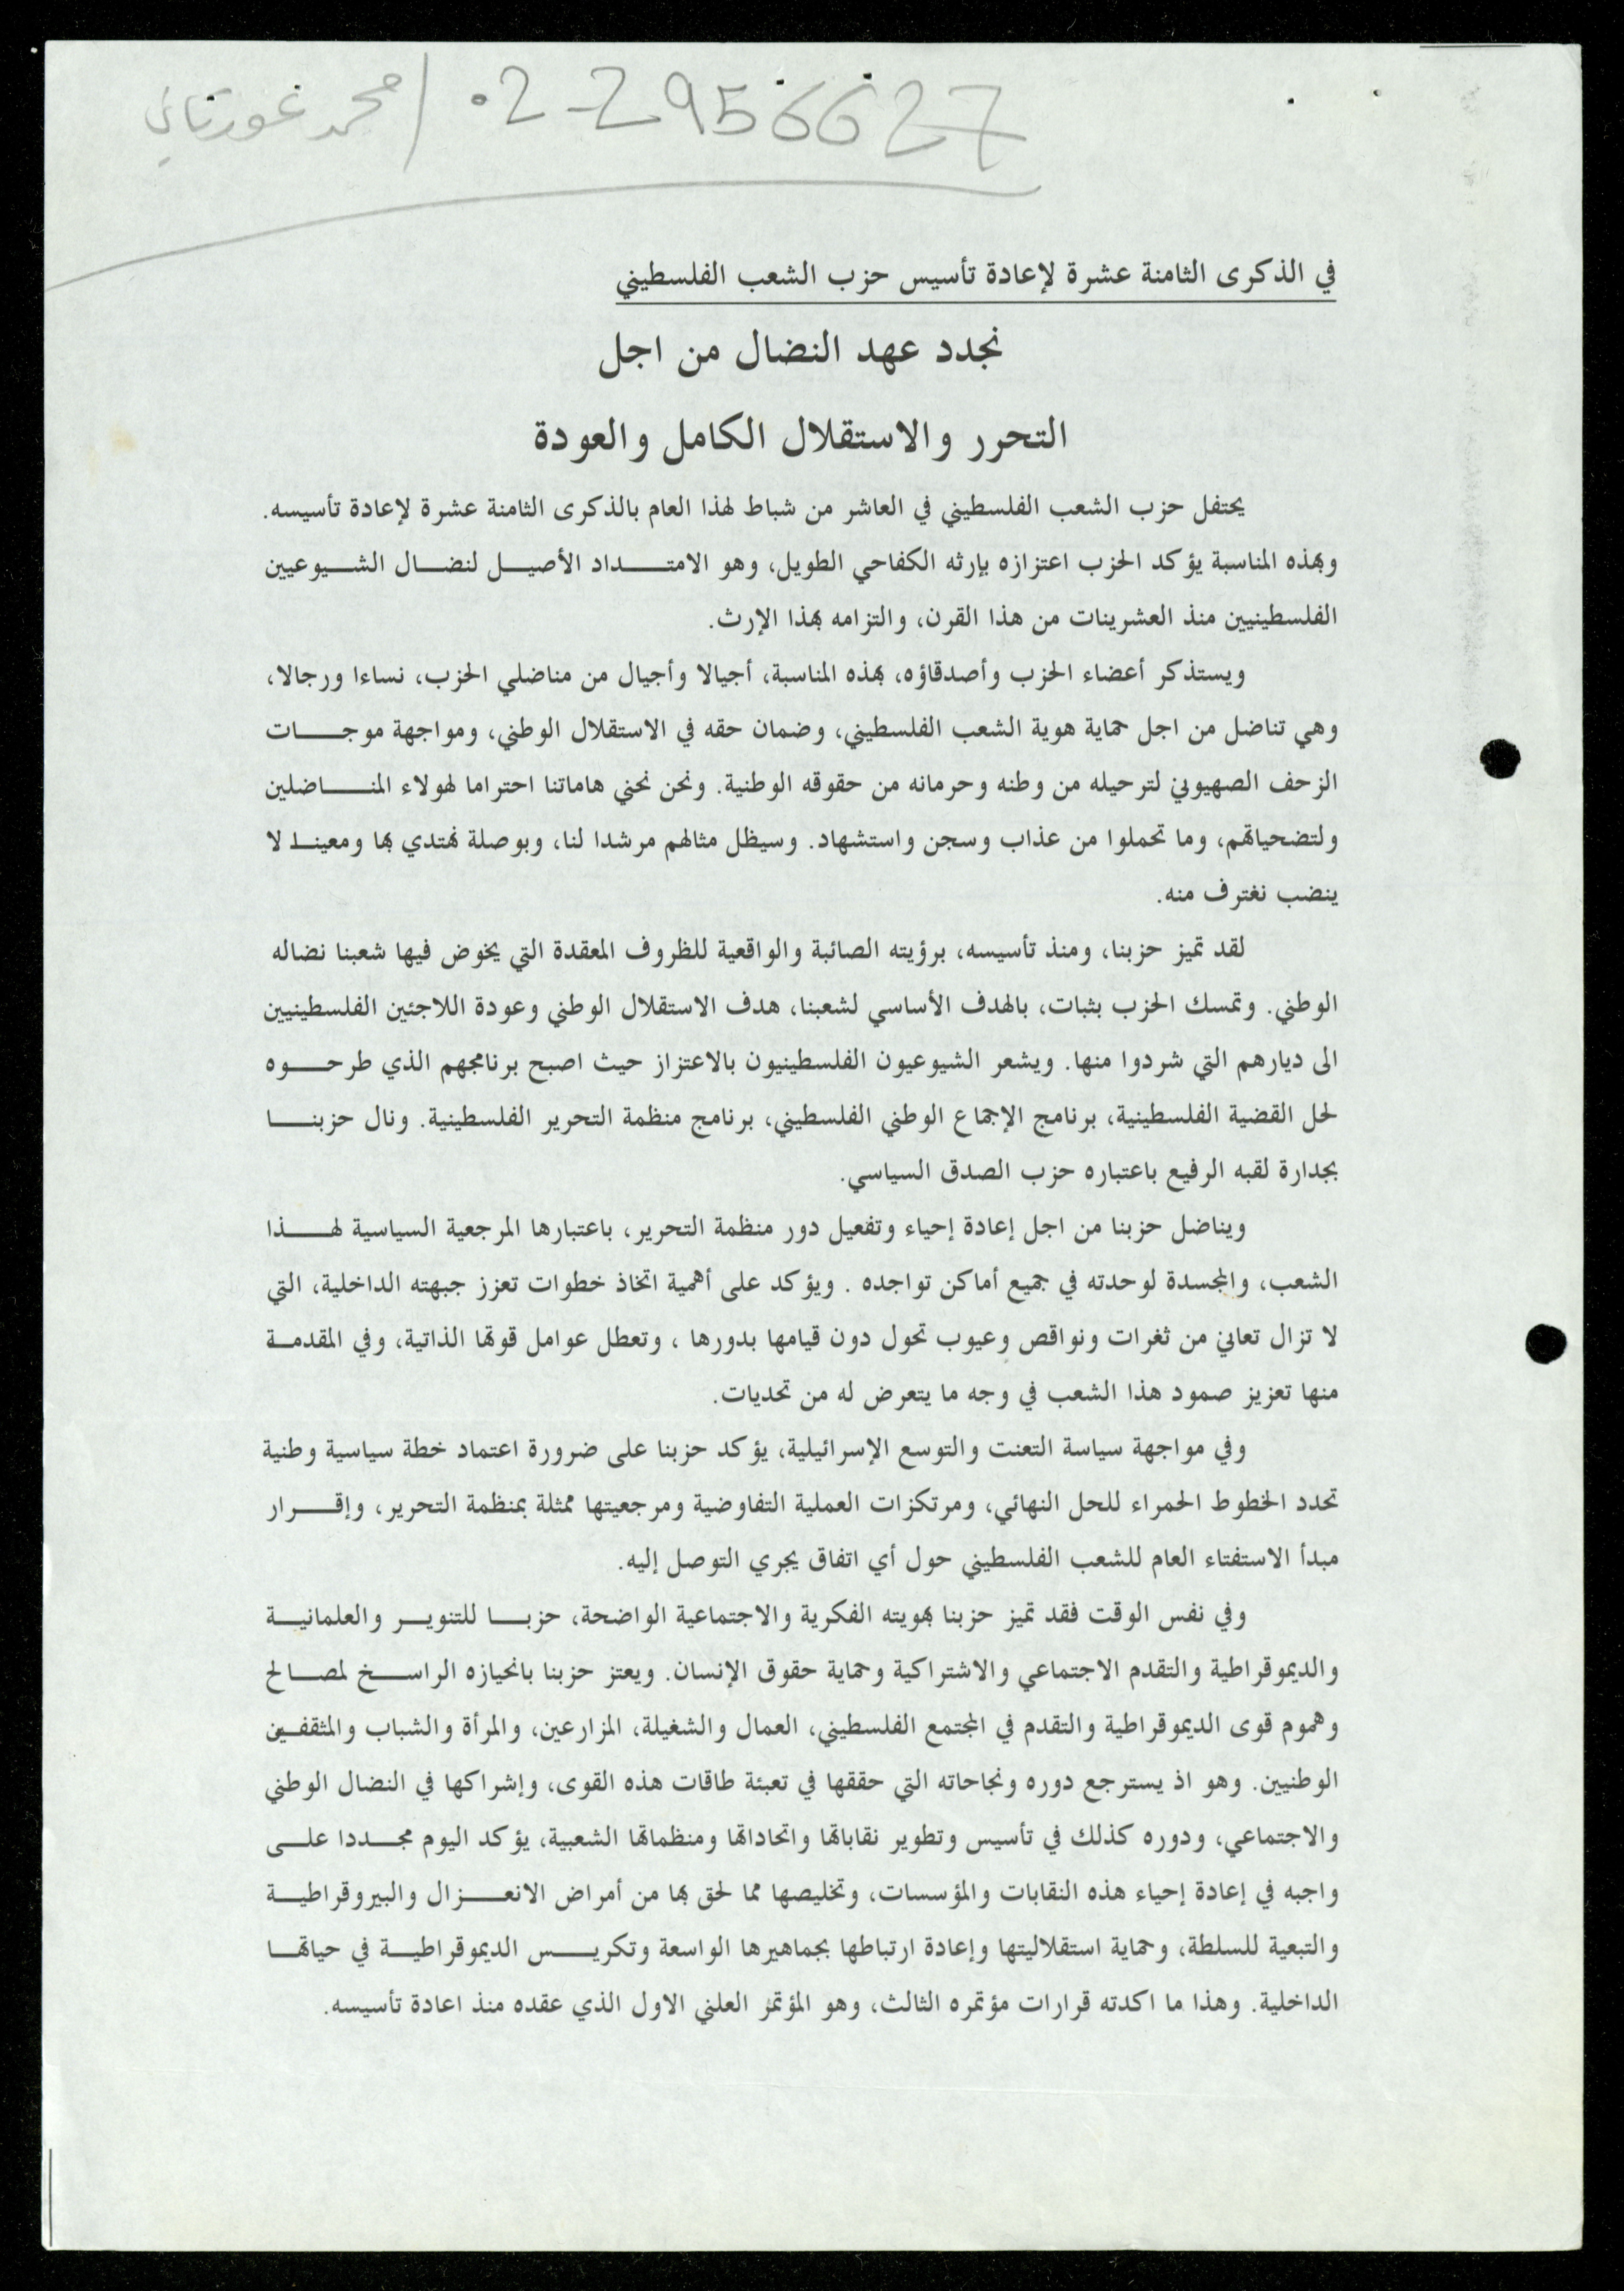 02-2956627 / محمد
في الذكرى الثامنة عشرة لإعادة تأسيس حزب الشعب الفلسطيني
نجدد عهد النضال من اجل
التحرر والاستقلال الكامل والعودة
يحتفل حزب الشعب الفلسطيني في العاشر من شباط لهذا العام بالذكرى الثامنة عشرة لإعادة تأسيسه.
وبهذه المناسبة يؤكد الحزب اعتزازه بإرثه الكفاحي الطويل، وهو الامتداد الأصيل لنضال الشيوعيين
الفلسطينيين منذ العشرينات من هذا القرن، والتزامه بهذا الإرث.
ويستذكر أعضاء الحزب وأصدقاؤه، بهذه المناسبة، أجيالا وأجيال من مناضلي الحزب، نساءا ورجالا،
وهي تناضل من اجل حماية هوية الشعب الفلسطيني، وضمان حقه في الاستقلال الوطني، ومواجهة موجات
الزحف الصهيوني لترحيله من وطنه وحرمانه من حقوقه الوطنية. ونحن نحني هاماتنا احتراما لهولاء المناضلين
ولتضحياتهم، وما تحملوا من عذاب وسجن واستشهاد. وسيظل مثالهم مرشدا لنا، وبوصلة نهتدي بها ومعينا لا
ينضب نغترف منه.
لقد تميز حزبنا، ومنذ تأسيسه، برؤيته الصائبة والواقعية للظروف المعقدة التي يخوض فيها شعبنا نضاله
الوطني. وتمسك الحزب بثبات، بالهدف الأساسي لشعبنا، هدف الاستقلال الوطني وعودة اللاجئين الفلسطينيين
الى ديارهم التي شردوا منها. ويشعر الشيوعيون الفلسطينيون بالاعتزاز حيث اصبح برنامجهم الذي طرحوه
لحل القضية الفلسطينية، برنامج الإجماع الوطني الفلسطيني، برنامج منظمة التحرير الفلسطينية. ونال حزبنا
بجدارة لقبه الرفيع باعتباره حزب الصدق السياسي.
ويناضل حزبنا من اجل إعادة إحياء وتفعيل دور منظمة التحرير، باعتبارها المرجعية السياسية لهذا
الشعب، والمجسدة لوحدته في جميع أماكن تواجده . ويؤكد على أهمية اتخاذ خطوات تعزز جبهته الداخلية، التي
لا تزال تعاني من ثغرات ونواقص وعيوب تحول دون قيامها بدورها ، وتعطل عوامل قوتها الذاتية، وفي المقدمة
منها تعزيز صمود هذا الشعب في وجه ما يتعرض له من تحديات.
وفي مواجهة سياسة التعنت والتوسع الإسرائيلية، يؤكد حزبنا على ضرورة اعتماد خطة سياسية وطنية
تحدد الخطوط الحمراء للحل النهائي، ومرتكزات العملية التفاوضية ومرجعيتها ممثلة بمنظمة التحرير، وإقرار
مبدأ الاستفتاء العام للشعب الفلسطيني حول أي اتفاق يجري التوصل إليه.
وفي نفس الوقت فقد تميز حزبنا بهويته الفكرية والاجتماعية الواضحة، حزبا للتنوير والعلمانية
والديموقراطية والتقدم الاجتماعي والاشتراكية وحماية حقوق الإنسان. ويعتز حزبنا بانحيازه الراسخ لمصالح
وهموم قوى الديموقراطية والتقدم في المجتمع الفلسطيني، العمال والشغيلة، المزارعين، والمرأة والشباب والمثقفين
الوطنيين. وهو اذ يسترجع دوره ونجاحاته التي حققها في تعبئة طاقات هذه القوى، وإشراكها في النضال الوطني
والاجتماعي، ودوره كذلك في تأسيس وتطوير نقاباتها واتحاداتها ومنظماتها الشعبية، يؤكد اليوم مجددا على
واجبه في إعادة إحياء هذه النقابات والمؤسسات، وتخليصها مما لحق بها من أمراض الانعزال والبيروقراطية
والتبعية للسلطة، وحماية استقلاليتها وإعادة ارتباطها بجماهيرها الواسعة وتكريس الديموقراطية في حياتها
الداخلية. وهذا ما اكدته قرارات مؤتمره الثالث، وهو المؤتمر العلني الاول الذي عقده منذ اعادة تأسيسه.